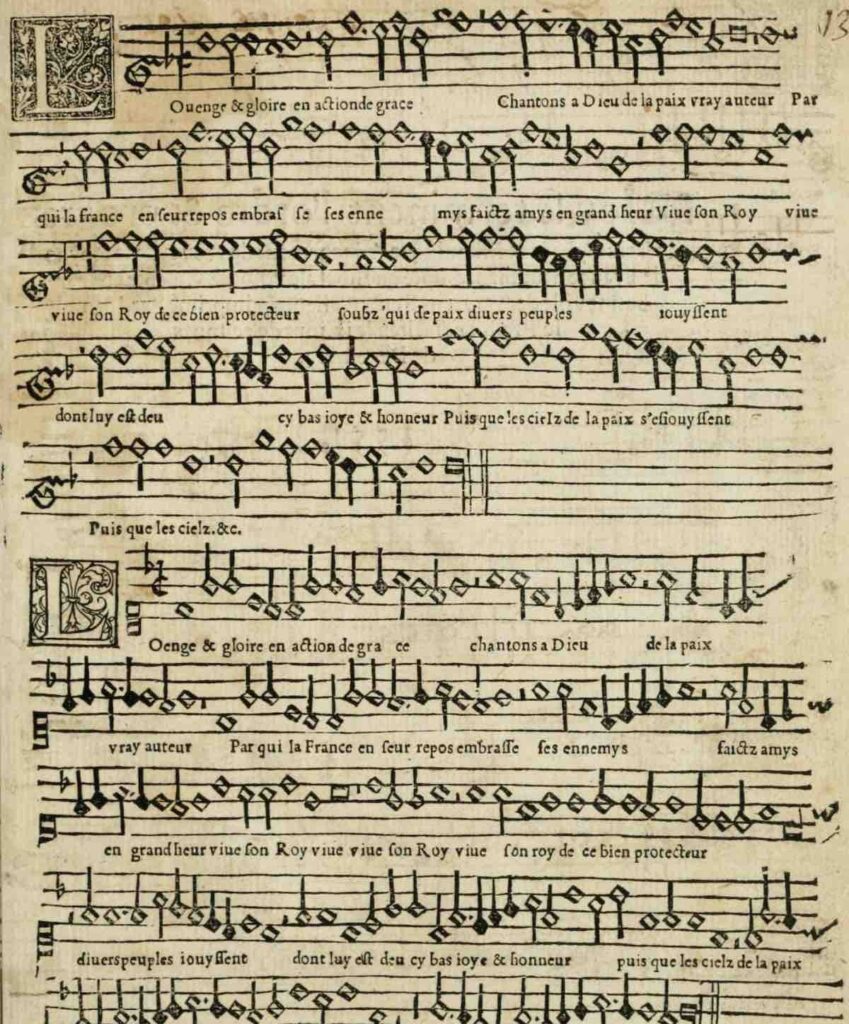 13
L Ouenge & gloire en action de grace Chantons a Dieu de la paix vray auteur Par
qui la france en seur repos embras se ses enne mys faictz amys en grand heur Viue son Roy viue
viue son Roy de ce bien protecteur soubz qui de paix diuers peuples iouyssent
dont luy est deu cy bas ioye & honneur Puis que les cielz de la paix s'esiouyssent
Puis que les cielz. &c.
L Oenge & gloire en action de gra ce chantons a Dieu de la paix
vray auteur Par qui la France en seur repos embrasse ses ennemys faictz amys
en grand heur viue son Roy viue viue son Roy viue son roy de ce bien protecteur
diuers peuples iouyssent dont luy est deu cy bas ioye & honneur puis que les cielz de la paix